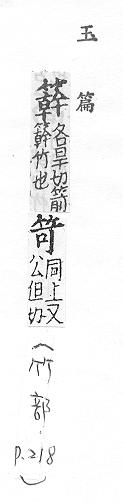 玉篇
簳各旱切箭
簳竹也
笴同上又
公但切
(竹部. p.218)